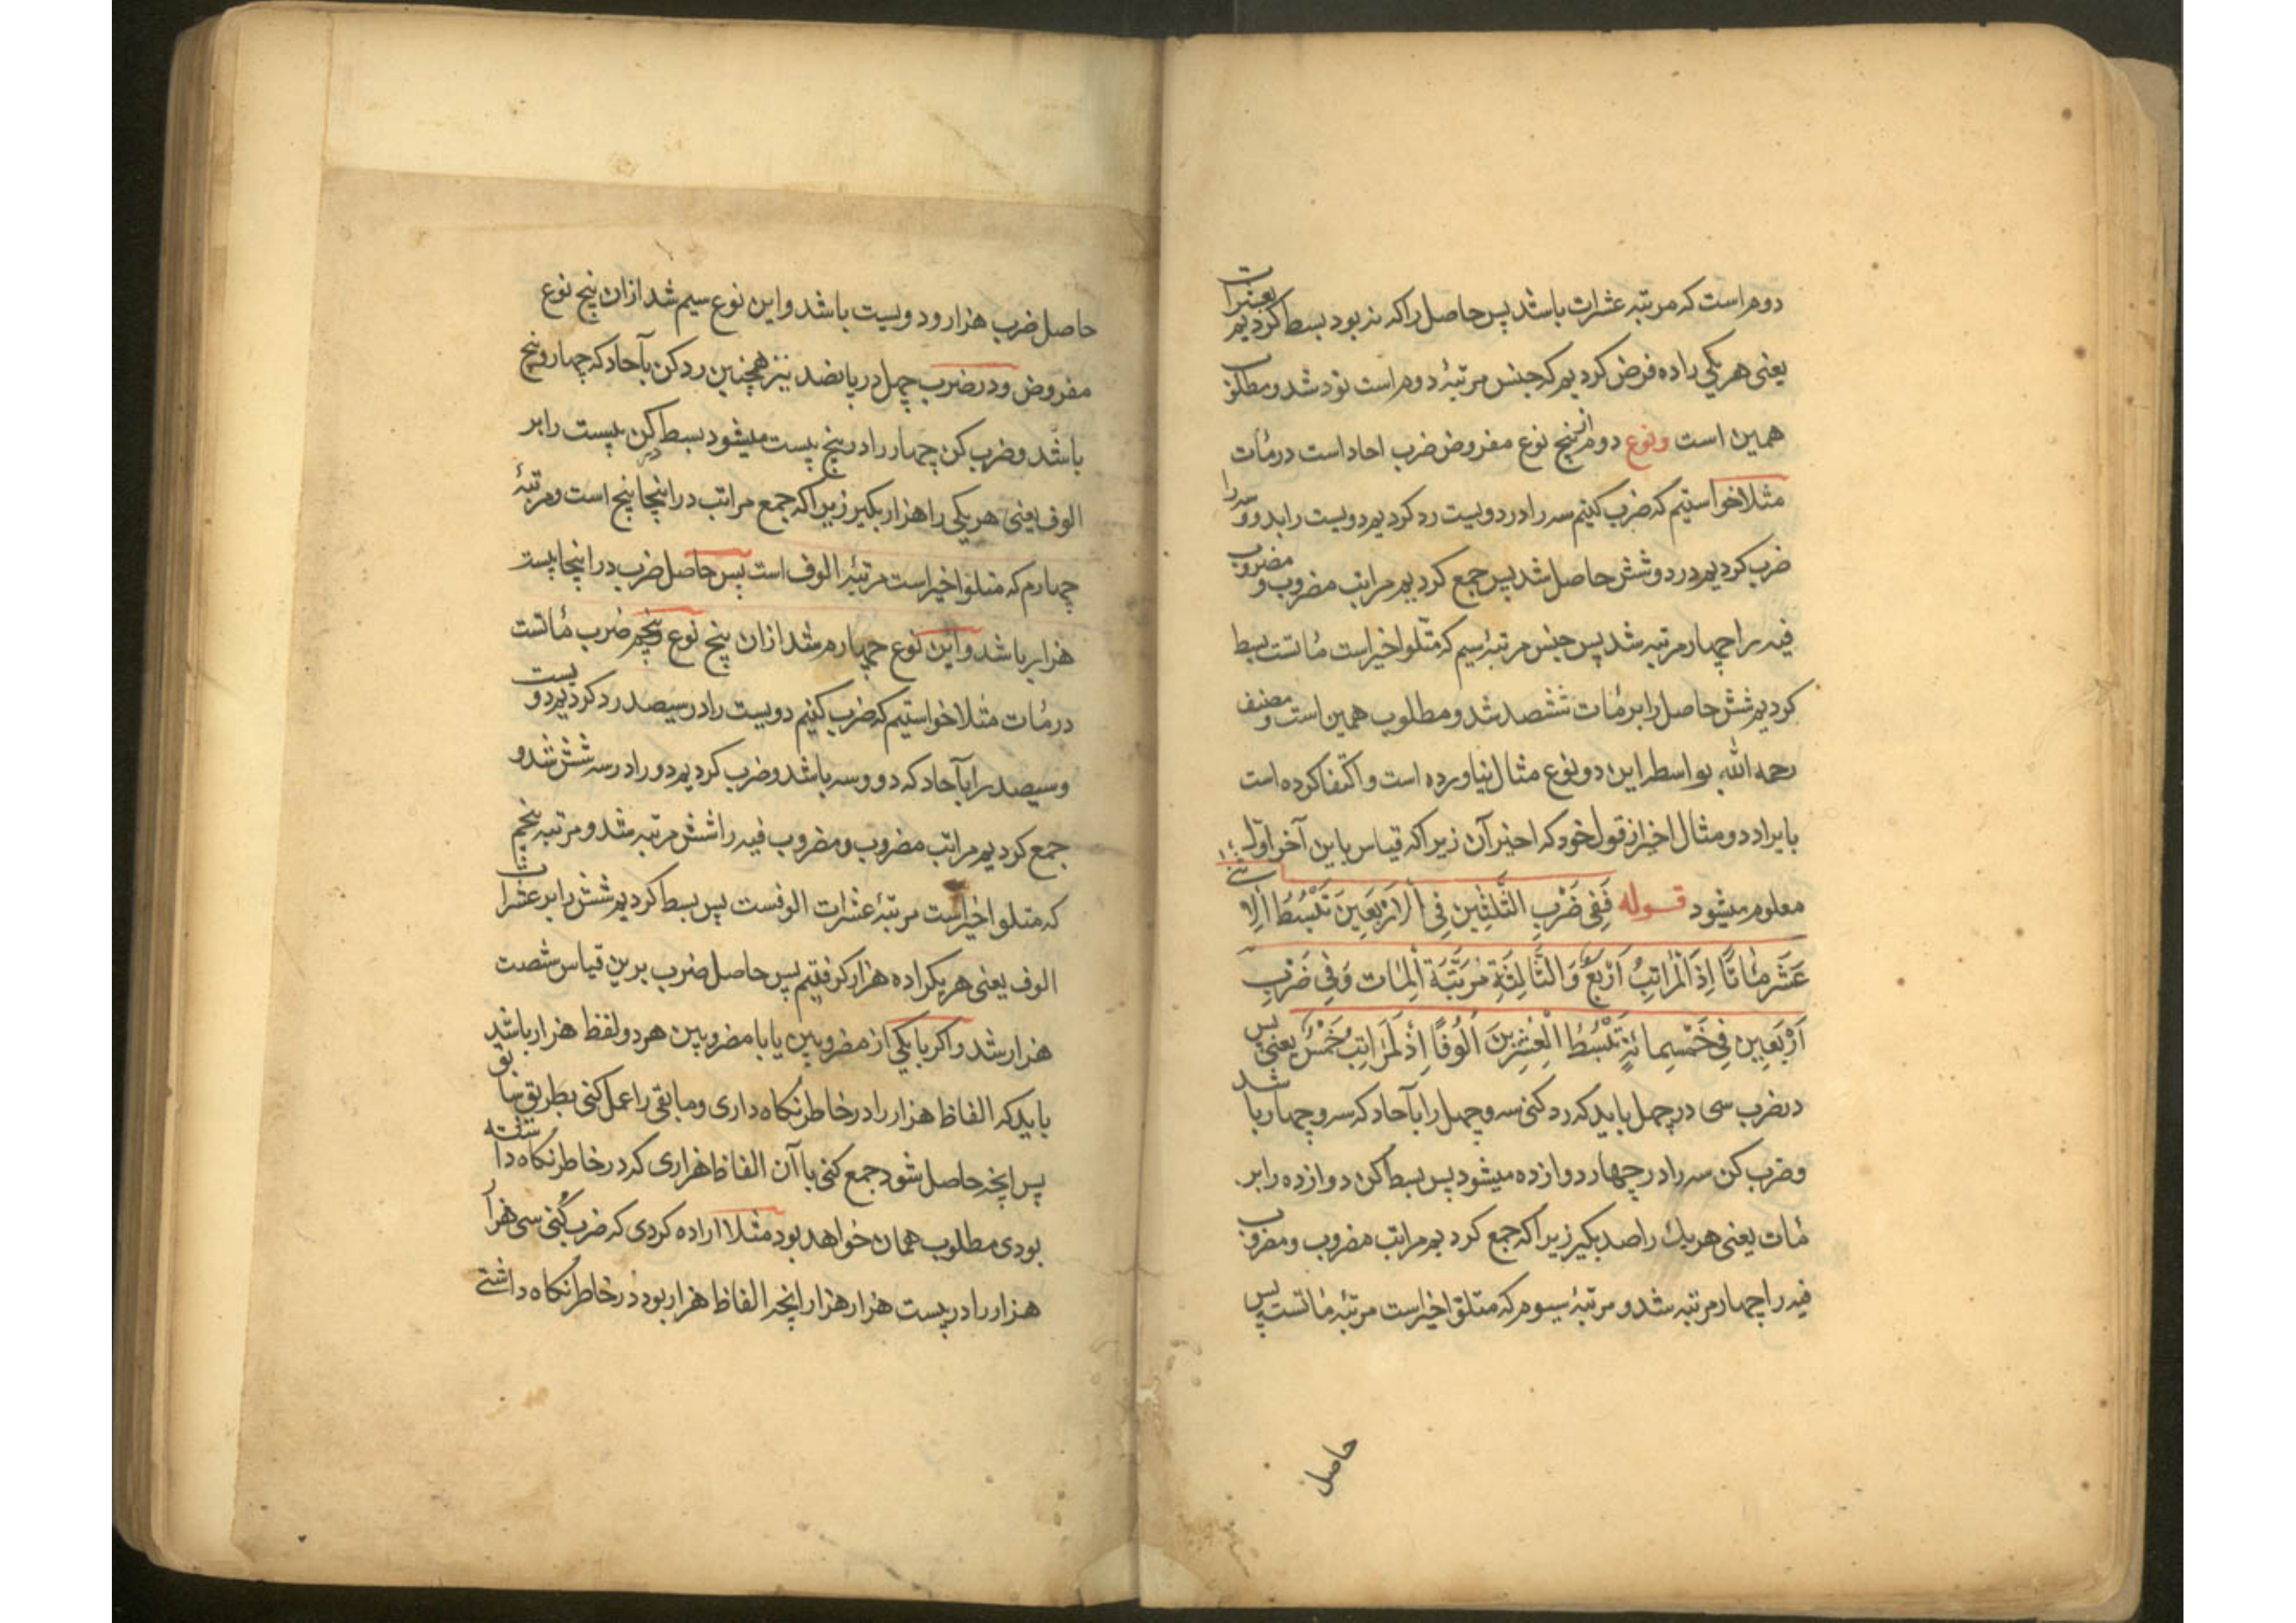 دوم است که مرتبه عشرات باشد پس حاصل را که نه بود بسط کردیم بعشرات
یعنی هر یکی را ده فرض کردیم که جنس مرتبهٔ دوم است نود شد و مطلوب
همین است ونوع دوم از پنج نوع مفروض ضرب احاد است در مٔات
مثلا خواستیم که ضرب کنیم سه را در دویست رد کردیم دویست را بدو و سه را
ضرب کردیم در دو شش حاصل شد پس جمع کردیم مراتب مضروب و مضروب
فیه را چهار مرتبه شد پس جنس مرتبهٔ سیم که متلو اخیر است مٔاتست بسط
کردیم شش حاصل را بر مٔات ششصد شد و مطلوب همین است و مصنف
رحمه الله بواسطه این دو نوع مثال نیاورده است و اکتفا کرده است
بایراد دو مثال اخیر از قول خود که اخیر آن زیرا که قیاس باین آخر اوله
معلوم میشود قوله فَفِی ضَرْبِ الثَّلٰثِینَ فِی الْاَرْبَعِینَ تَبْسُطُ الْاِثنی
عَشَرَ مِٔاتًا اِذِ الْمَرٰاتِبُ اَرْبَعٌ وَالثَّالِثَةُ مَرْتَبَةُ الْمِٔات وَفِی ضَرْبِ
اَرْبَعِین فِی خَمْسِمائةٍ تَبْسُطُ الْعِشْرِینَ اُلُوفًا اِذِ الْمَرَاتِبُ خَمْسٌ یعنی پس
در ضرب سی در چهل باید که رد کنی سی و چهل را بآحاد که سه و چهار باشد
وضرب کن سه را در چهار دوازده میشود پس بسط کن دوازده را بر
مٔات یعنی هر یک را صد بکیر زیرا که جمع کردیم مراتب مضروب و مضروب
فیه را چهار مرتبه شد و مرتبهٔ سیوم که متلوّ اخیر است مرتبهٔ مٔاتست پس
حاصل
حاصل ضرب هزار و دویست باشد و این نوع سیم شد ازان پنج نوع
مفروض ودر ضرب چهل در پانصد نیز همچنین رد کن بآحاد که چهار و پنج
باشد و ضرب کن چهار را در پنج بیست میشود بسط کن بیست را بر
الوف یعنی هر یکی را هزار بکیر زیرا که جمع مراتب در اینجا پنج است و مرتبهٔ
چهارم که متلوّ اخیر است مرتبهٔ الوف است پس حاصل ضرب در اینجا بیست
هزار باشد و این نوع چهارم شد ازان پنج نوع و پنجم ضرب مٔاتست
در مٔات مثلا خواستیم که ضرب کنیم دویست را در سیصد رد کردیم دویست
و سیصد را بآحاد که دو و سه باشد و ضرب کردیم دو را در سه شش شد و
جمع کردیم مراتب مضروب و مضروب فیه را شش مرتبه شد و مرتبه پنجم
که متلو اخیر است مرتبهٔ عشرات الوفست پس بسط کردیم شش را بر عشرات
الوف یعنی هر یکرا ده هزار کرفتیم پس حاصل ضرب برین قیاس شصت
هزار شد و اکر با یکی از مضروبین یا با مضروبین هر دو لفظ هزار باشد
باید که الفاظ هزار را در خاطر نکاه داری و مابقی را عمل کنی بطریق سابق
پس انچه حاصل شود جمع کنی با آن الفاظ هزاری که در خاطر نکاه داشته
بودی مطلوب همان خواهد بود مثلا اراده کردی که ضرب کنی سی هزار
هزار را در بیست هزار هزار انچه الفاظ هزار بود در خاطر نکاه داشتی